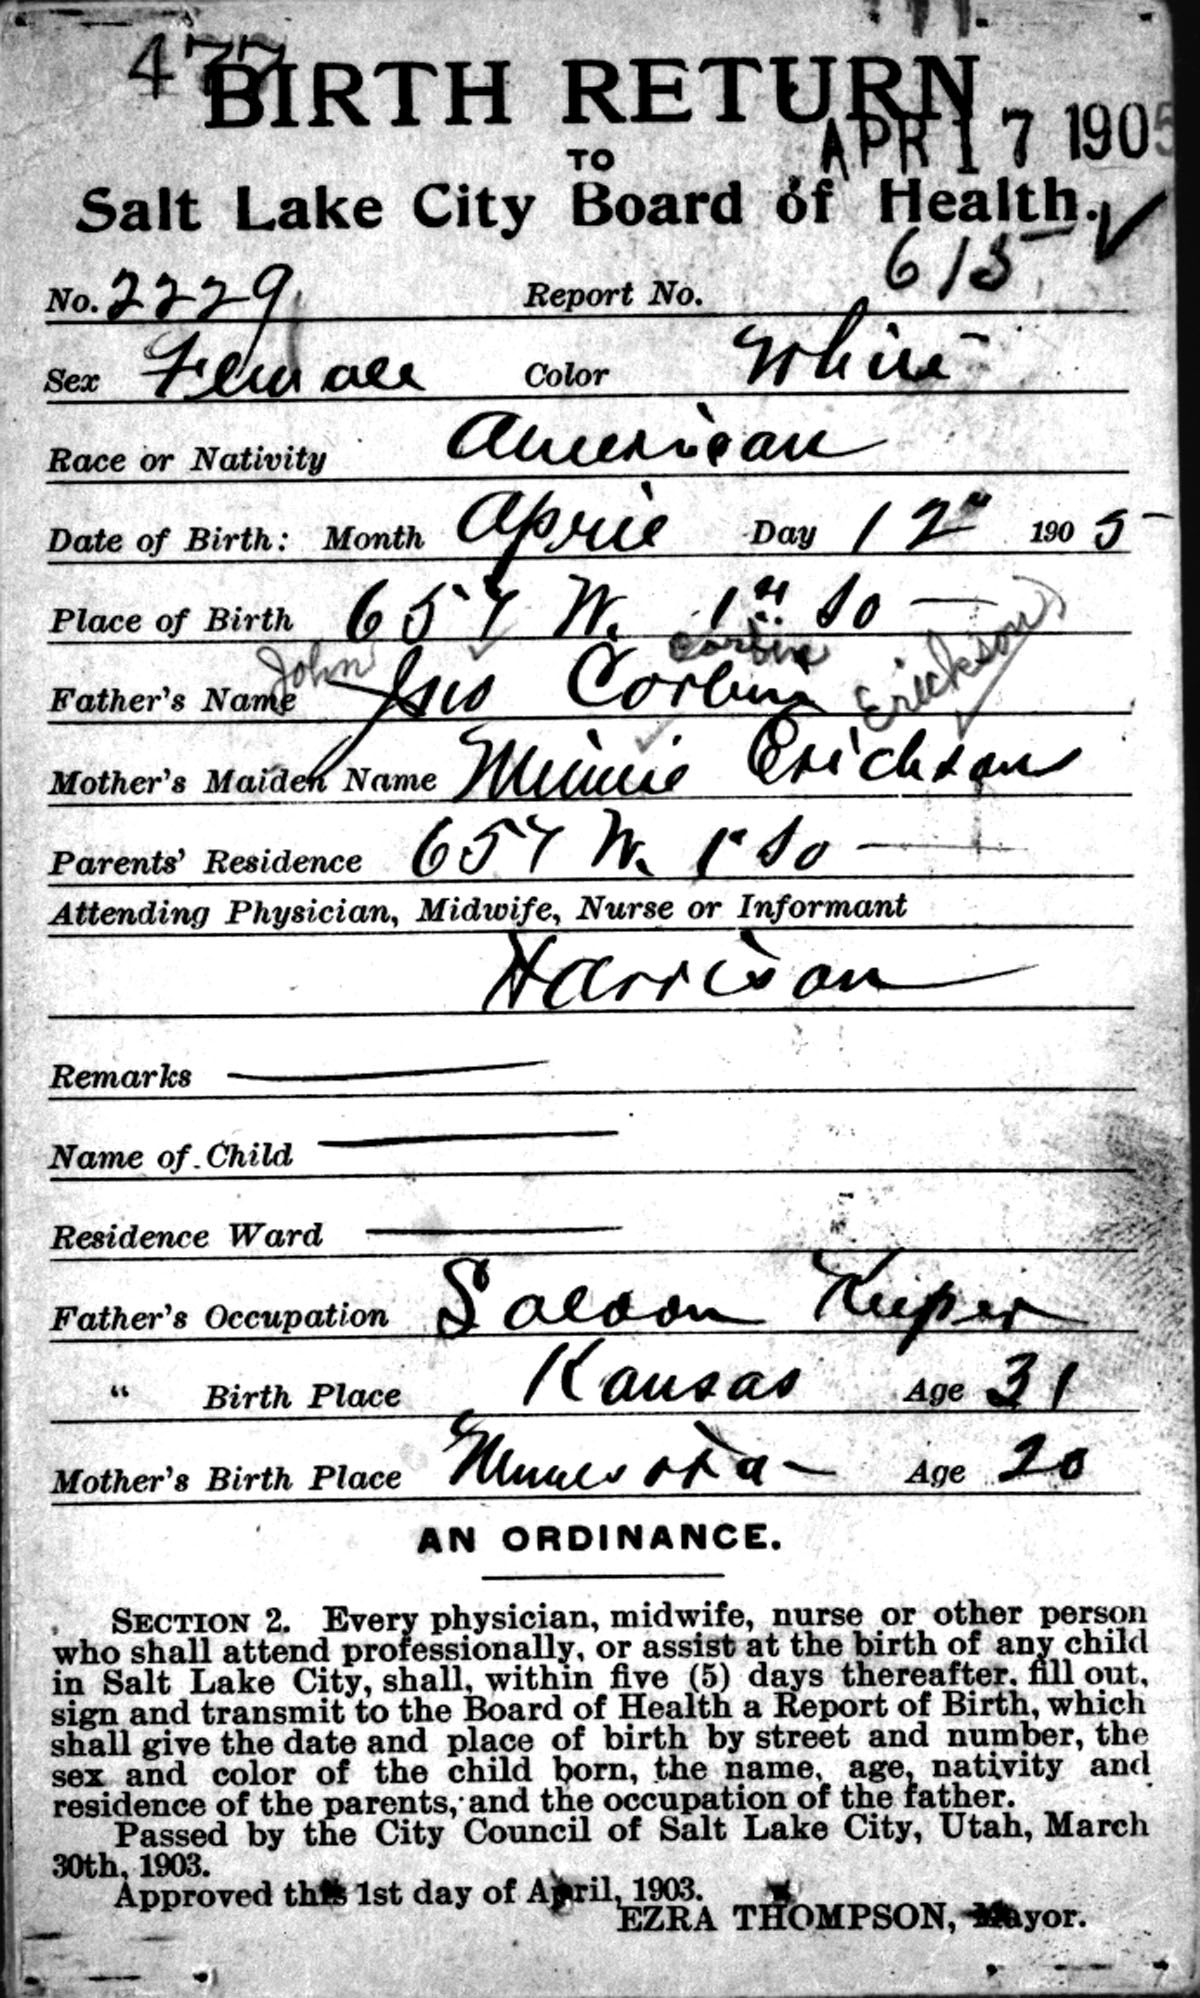 477
BIRTH RETURN
APR 17 1905
TO
Salt Lake City Board of Health.
No. 2229 Report No. 615
Sex Female Color White
Race or Nativity American
Date of Birth: Month April Day 12" 1905
Place of Birth 657 W. 1st So
John Corbin Erickson
Father's Name Jno Corbin
Mother's Maiden Name Minnie Erickson
Parents' Residence 657 W. 1st So
Attending Physician, Midwife, Nurse or Informant
Harrison
Remarks
Name of Child
Residence Ward
Father's Occupation Saloon Keeper
" Birth Place Kansas Age 31
Mother's Birth Place Minnesota Age 20
AN ORDINANCE.
SECTION 2. Every physician, midwife, nurse or other person
who shall attend professionally, or assist at the birth of any child
in Salt Lake City, shall, within five (5) days thereafter, fill out,
sign and transmit to the Board of Health a Report of Birth, which
shall give the date and place of birth by street and number, the
sex and color of the child born, the name, age, nativity and
residence of the parents, and the occupation of the father.
Passed by the City Council of Salt Lake City, Utah, March
30th, 1903.
Approved this 1st day of April, 1903.
EZRA THOMPSON, Mayor.